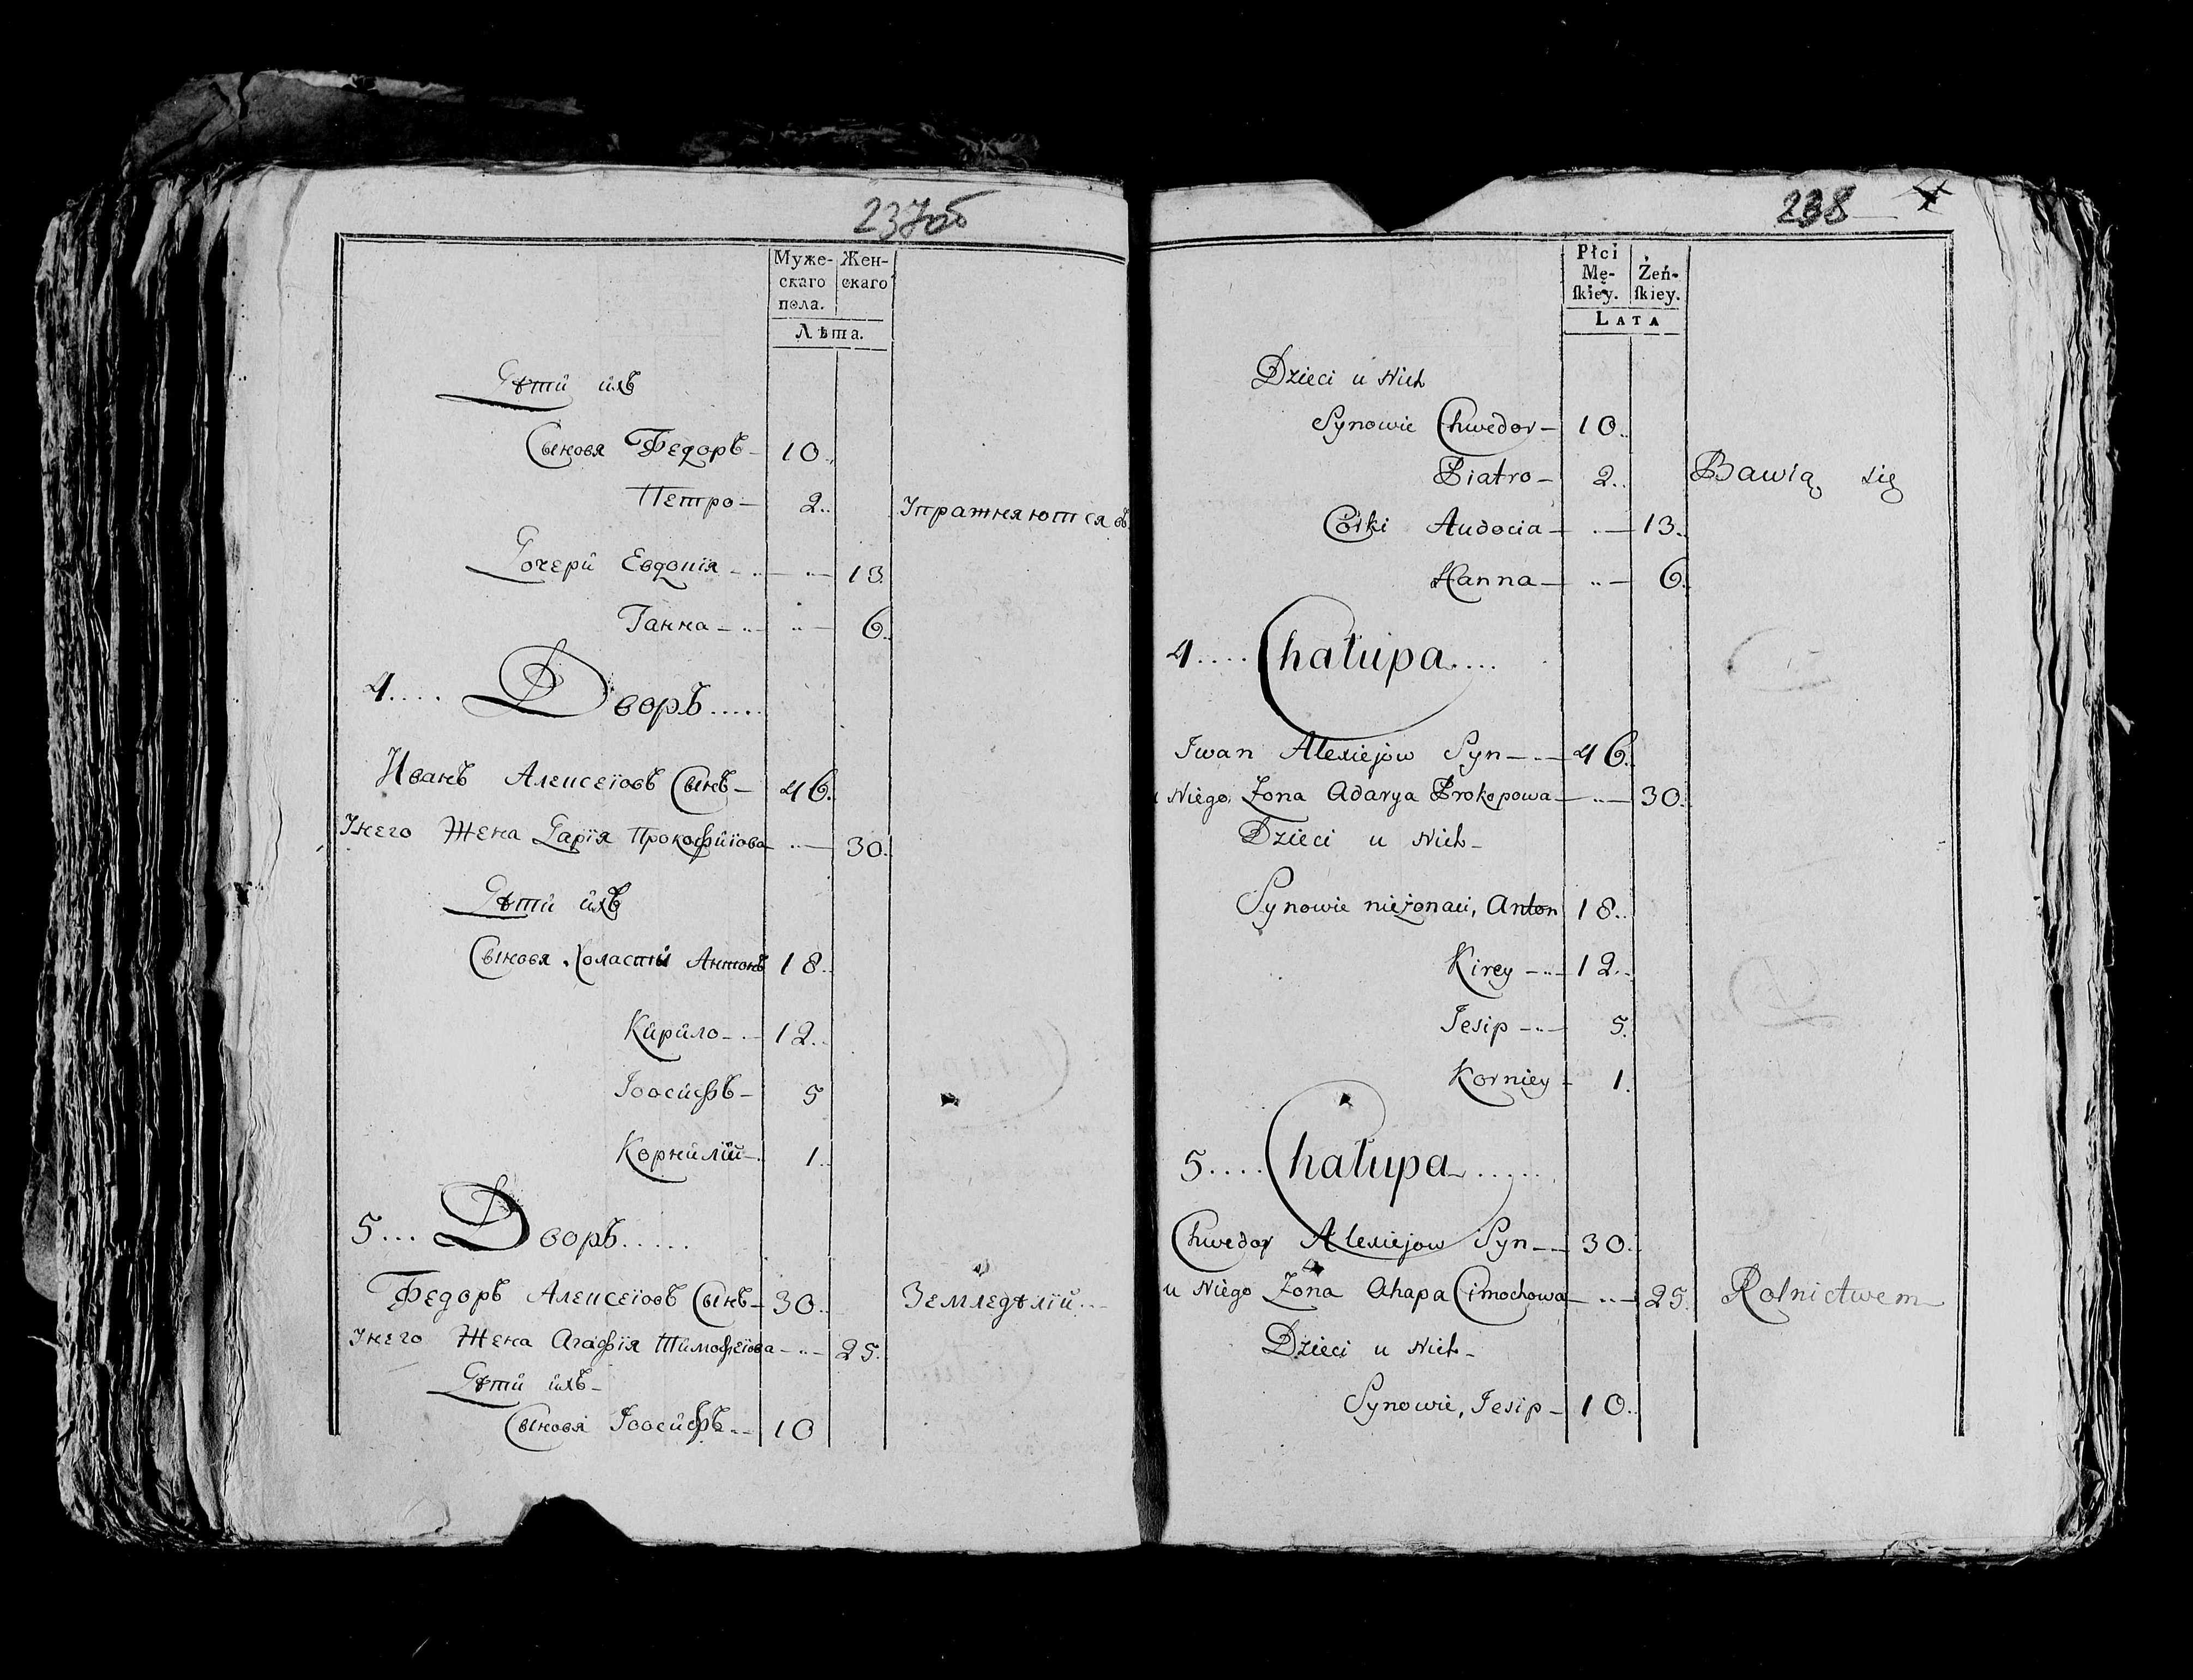 237об
Муже- Жен-
скаго скаго
пола.
Лѣта.
Дѣти ихъ
Сыновя Федоръ 10
Петро 2 Упражняются въ
Дочери Евдокія 13
Ганна 6
4.... Дворъ.....
Иванъ Алексеіовъ Сынъ 46
Унего Жена Дарія Прокофиіова 30
Дѣти ихъ
Сыновя Холастыі Антонъ 18
Кирило 12
Іосифъ 5
Корнилій 1
5... Дворъ.....
Федоръ Алексеіовъ Сынъ 30 Земледѣлій...
Унего Жена Агафія Тимофеіова 25
Дѣти ихъ
Сыновя Іосифъ 10
238
Płci
Mę- Żeń-
skiey. skiey.
LATA
Dzieci u Nich
Synowie Chwedor 10
Piatro 2 Bawią się
Córki Audocia 13
Hanna 6
4.... Chałupa....
Iwan Alexiejow Syn 46
u Niego Zona Adarya Prokopowa 30
Dzieci u Nich
Synowie nieżonaci, Anton 18
Kirey 12
Jesip 5
Korniey 1
5.... Chałupa......
Chwedor Alexiejow Syn 30
u Niego Zona Ahapa Cimochowa 25 Rolnictwem
Dzieci u Nich
Synowie, Jesip 10